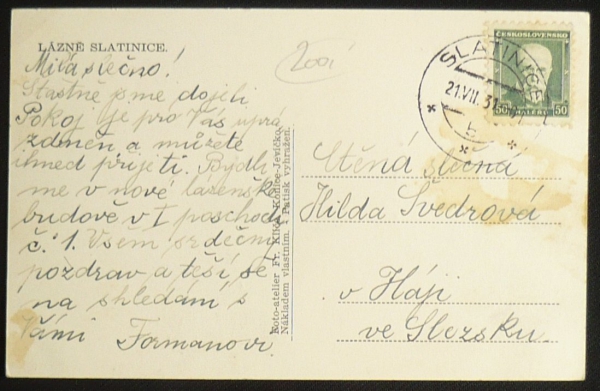 LÁZNĚ SLATINICE.
Milá slečno!
Šťastně jsme dojeli.
Pokoj je pro Vás uprá
zdněn a můžete
ihned přijeti. Bydlí
me v nové lázeňské
budově v I poschodí
č. 1. Všem srdečný
pozdrav a těší se
na shledání s
Vámi Formanovi.
Foto-atelier Fr. Kónice-Jevíčko.
Nákladem vlastním. Patisk vyhražen.
ČESKOSLOVENSKO
50 50
HALÉŘŮ
SLATINICE
21.VII.31
Ctěná slečna
Hilda Švedrová
v Háji
ve Slezsku.